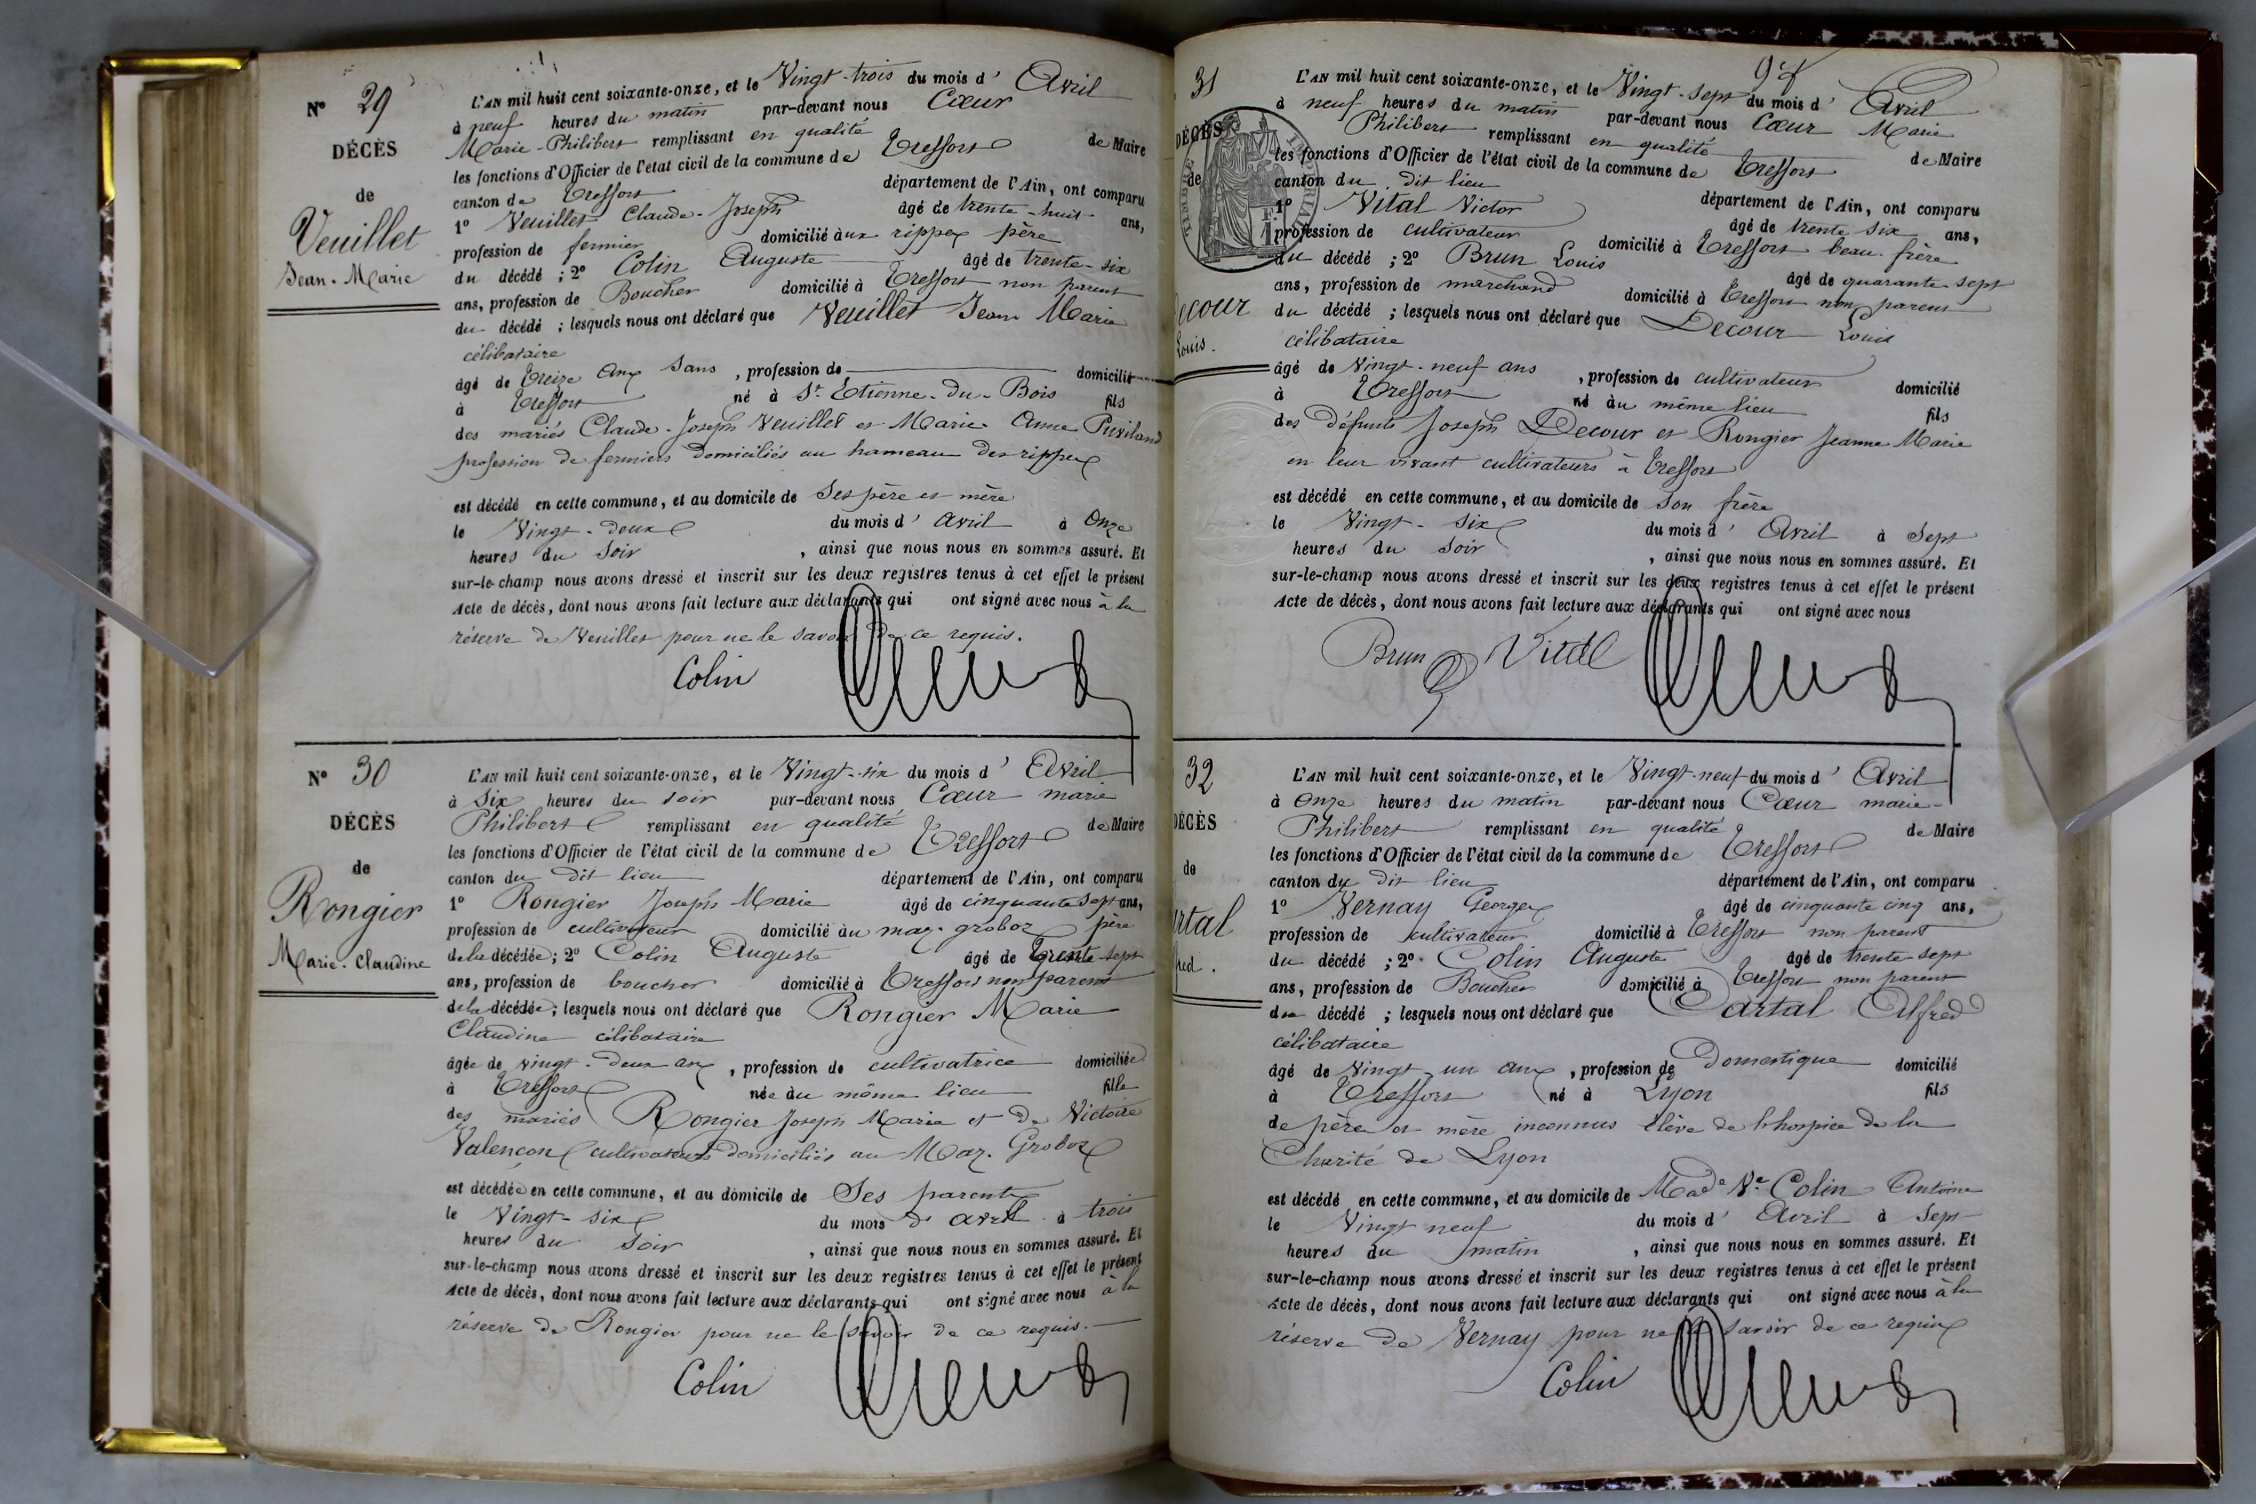 N° 29
DÉCÈS
de
Veuillet
Jean-Marie
L'AN mil huit cent soixante-onze, et le Vingt-trois du mois d' Avril
à neuf heures du matin par-devant nous Cœur
Marie-Philibert remplissant en qualité de Maire
les fonctions d'Officier de l'état civil de la commune de Treffort
canton de Treffort département de l'Ain, ont comparu
1° Veuillet Claude-Joseph âgé de trente-huit ans,
profession de fermier domicilié aux rippes père
du décédé ; 2° Colin Auguste âgé de trente-six
ans, profession de Boucher domicilié à Treffort non parent
du décédé ; lesquels nous ont déclaré que Veuillet Jean Marie
célibataire
âgé de treize ans sans , profession de domicilié
à Treffort né à St Etienne-du-Bois fils
des mariés Claude-Joseph Veuillet et Marie Anne
profession de fermiers domiciliés au hameau des rippes
est décédé en cette commune, et au domicile de Ses père et mère
le Vingt-deux du mois d' avril à Onze
heures du Soir , ainsi que nous nous en sommes assuré. Et
sur-le-champ nous avons dressé et inscrit sur les deux registres tenus à cet effet le présent
Acte de décès, dont nous avons fait lecture aux déclarants qui ont signé avec nous à la
réserve de Veuillet pour ne le savoir de ce requis.
Colin
N° 30
DÉCÈS
de
Rongier
Marie-Claudine
L'AN mil huit cent soixante-onze, et le Vingt-six du mois d' Avril
à Six heures du soir par-devant nous Cœur marie
Philibert remplissant en qualité de Maire
les fonctions d'Officier de l'état civil de la commune de Treffort
canton du dit lieu département de l'Ain, ont comparu
1° Rongier Joseph Marie âgé de cinquante sept ans,
profession de cultivateur domicilié au maz-groboz père
de la décédée ; 2° Colin Auguste âgé de trente-sept
ans, profession de boucher domicilié à Treffort non parent
de la décédée ; lesquels nous ont déclaré que Rongier Marie
Claudine célibataire
âgée de vingt-deux ans , profession de cultivatrice domiciliée
à Treffort née au même lieu fille
des mariés Rongier Joseph Marie et de Victoire
Valençon cultivateurs domiciliés au Maz-Groboz
est décédée en cette commune, et au domicile de Ses parents
le Vingt-six du mois d' avril à trois
heures du Soir , ainsi que nous nous en sommes assuré. Et
sur-le-champ nous avons dressé et inscrit sur les deux registres tenus à cet effet le présent
Acte de décès, dont nous avons fait lecture aux déclarants qui ont signé avec nous à la
réserve de Rongier pour ne le savoir de ce requis.
Colin
31
DÉCÈS
de
ecour
Louis.
TIMBRE IMPERIAL
L'AN mil huit cent soixante-onze, et le Vingt-sept du mois d' Avril
à neuf heures du matin par-devant nous Cœur Marie
Philibert remplissant en qualité de Maire
les fonctions d'Officier de l'état civil de la commune de Treffort
canton du dit lieu département de l'Ain, ont comparu
1° Vital Victor âgé de trente six ans,
profession de cultivateur domicilié à Treffort beau-frère
du décédé ; 2° Brun Louis âgé de quarante-sept
ans, profession de marchand domicilié à Treffort non parent
du décédé ; lesquels nous ont déclaré que Decour Louis
célibataire
âgé de Vingt-neuf ans , profession de cultivateur domicilié
à Treffort né au même lieu fils
des défunts Joseph Decour et Rongier Jeanne Marie
en leur vivant cultivateurs à Treffort
est décédé en cette commune, et au domicile de Son frère
le Vingt-six du mois d' Avril à Sept
heures du Soir , ainsi que nous nous en sommes assuré. Et
sur-le-champ nous avons dressé et inscrit sur les deux registres tenus à cet effet le présent
Acte de décès, dont nous avons fait lecture aux déclarants qui ont signé avec nous
Brun Vital
32
DÉCÈS
de
rtal
fred.
L'AN mil huit cent soixante-onze, et le Vingt-neuf du mois d' Avril
à Onze heures du matin par-devant nous Cœur marie-
Philibert remplissant en qualité de Maire
les fonctions d'Officier de l'état civil de la commune de Treffort
canton du dit lieu département de l'Ain, ont comparu
1° Vernay Georges âgé de cinquante cinq ans,
profession de cultivateur domicilié à Treffort non parent
du décédé ; 2° Colin Auguste âgé de trente-sept
ans, profession de Boucher domicilié à Treffort non parent
du décédé ; lesquels nous ont déclaré que Cartal Alfred
célibataire
âgé de Vingt-un ans , profession de Domestique domicilié
à Treffort né à Lyon fils
de père et mère inconnus élève de l'hospice de la
Charité de Lyon
est décédé en cette commune, et au domicile de Made Ve Colin Antoine
le Vingt neuf du mois d' Avril à Sept
heures du matin , ainsi que nous nous en sommes assuré. Et
sur-le-champ nous avons dressé et inscrit sur les deux registres tenus à cet effet le présent
Acte de décès, dont nous avons fait lecture aux déclarants qui ont signé avec nous à la
réserve de Vernay pour ne le savoir de ce requis
Colin